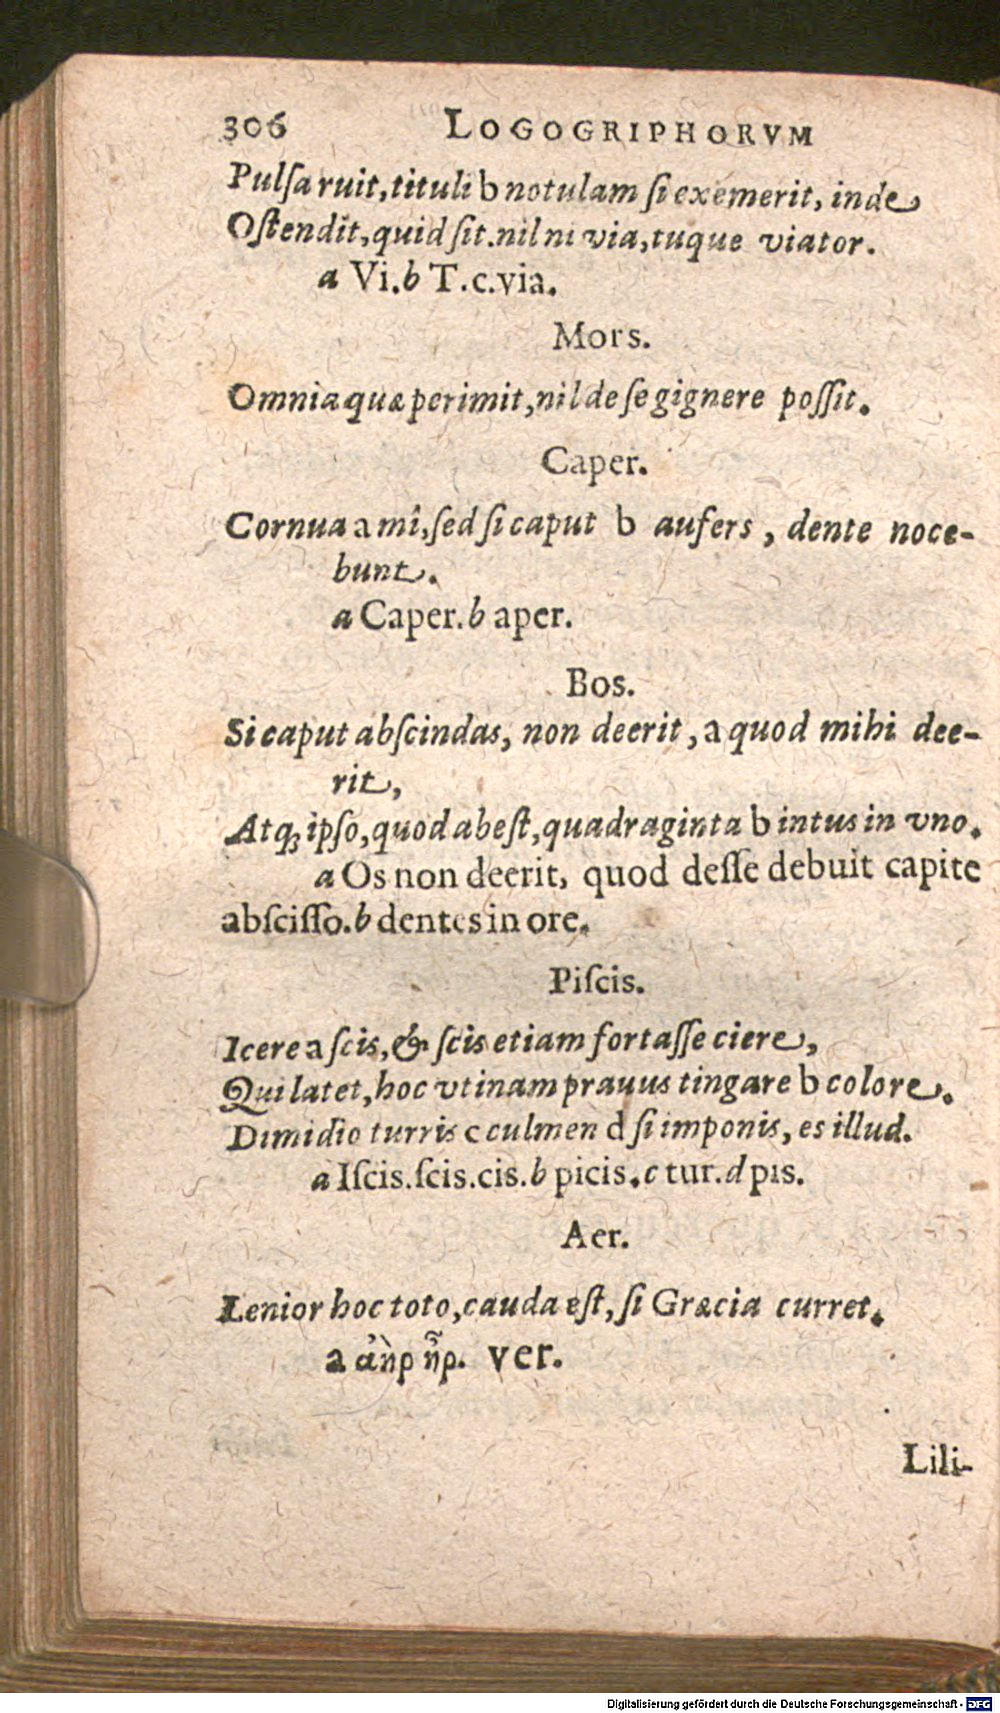 306 LOGOGRIPHORVM
Pulſa ruit, tituli b notulam ſi exemerit, inde
Oſtendit, quid ſit. nil ni via, tuque viator.
a Vi. b T. c. via.
Mors.
Omnia quæ perimit, nil de ſe gignere poſſit.
Caper.
Cornua a mî, ſed ſi caput b aufers, dente noce-
bunt.
a Caper. b aper.
Bos.
Si caput abſcindas, non deerit, a quod mihi dee-
rit,
Atqꝫ ipſo, quod abeſt, quadraginta b intus in vno.
a Os non deerit, quod deſſe debuit capite
abſciſſo. b dentes in ore.
Piſcis.
Icere a ſcis, & ſcis etiam fortaſſe ciere,
Qui latet, hoc vtinam prauus tingare b colore.
Dimidio turris c culmen d ſi imponis, es illud.
a Iſcis. ſcis. cis. b picis. c tur. d pis.
Aer.
Lenior hoc toto, cauda eſt, ſi Græcia curret.
a ἀὴρ ἦρ. ver.
Lili-
Digitalisierung gefördert durch die Deutsche Forschungsgemeinschaft - DFG